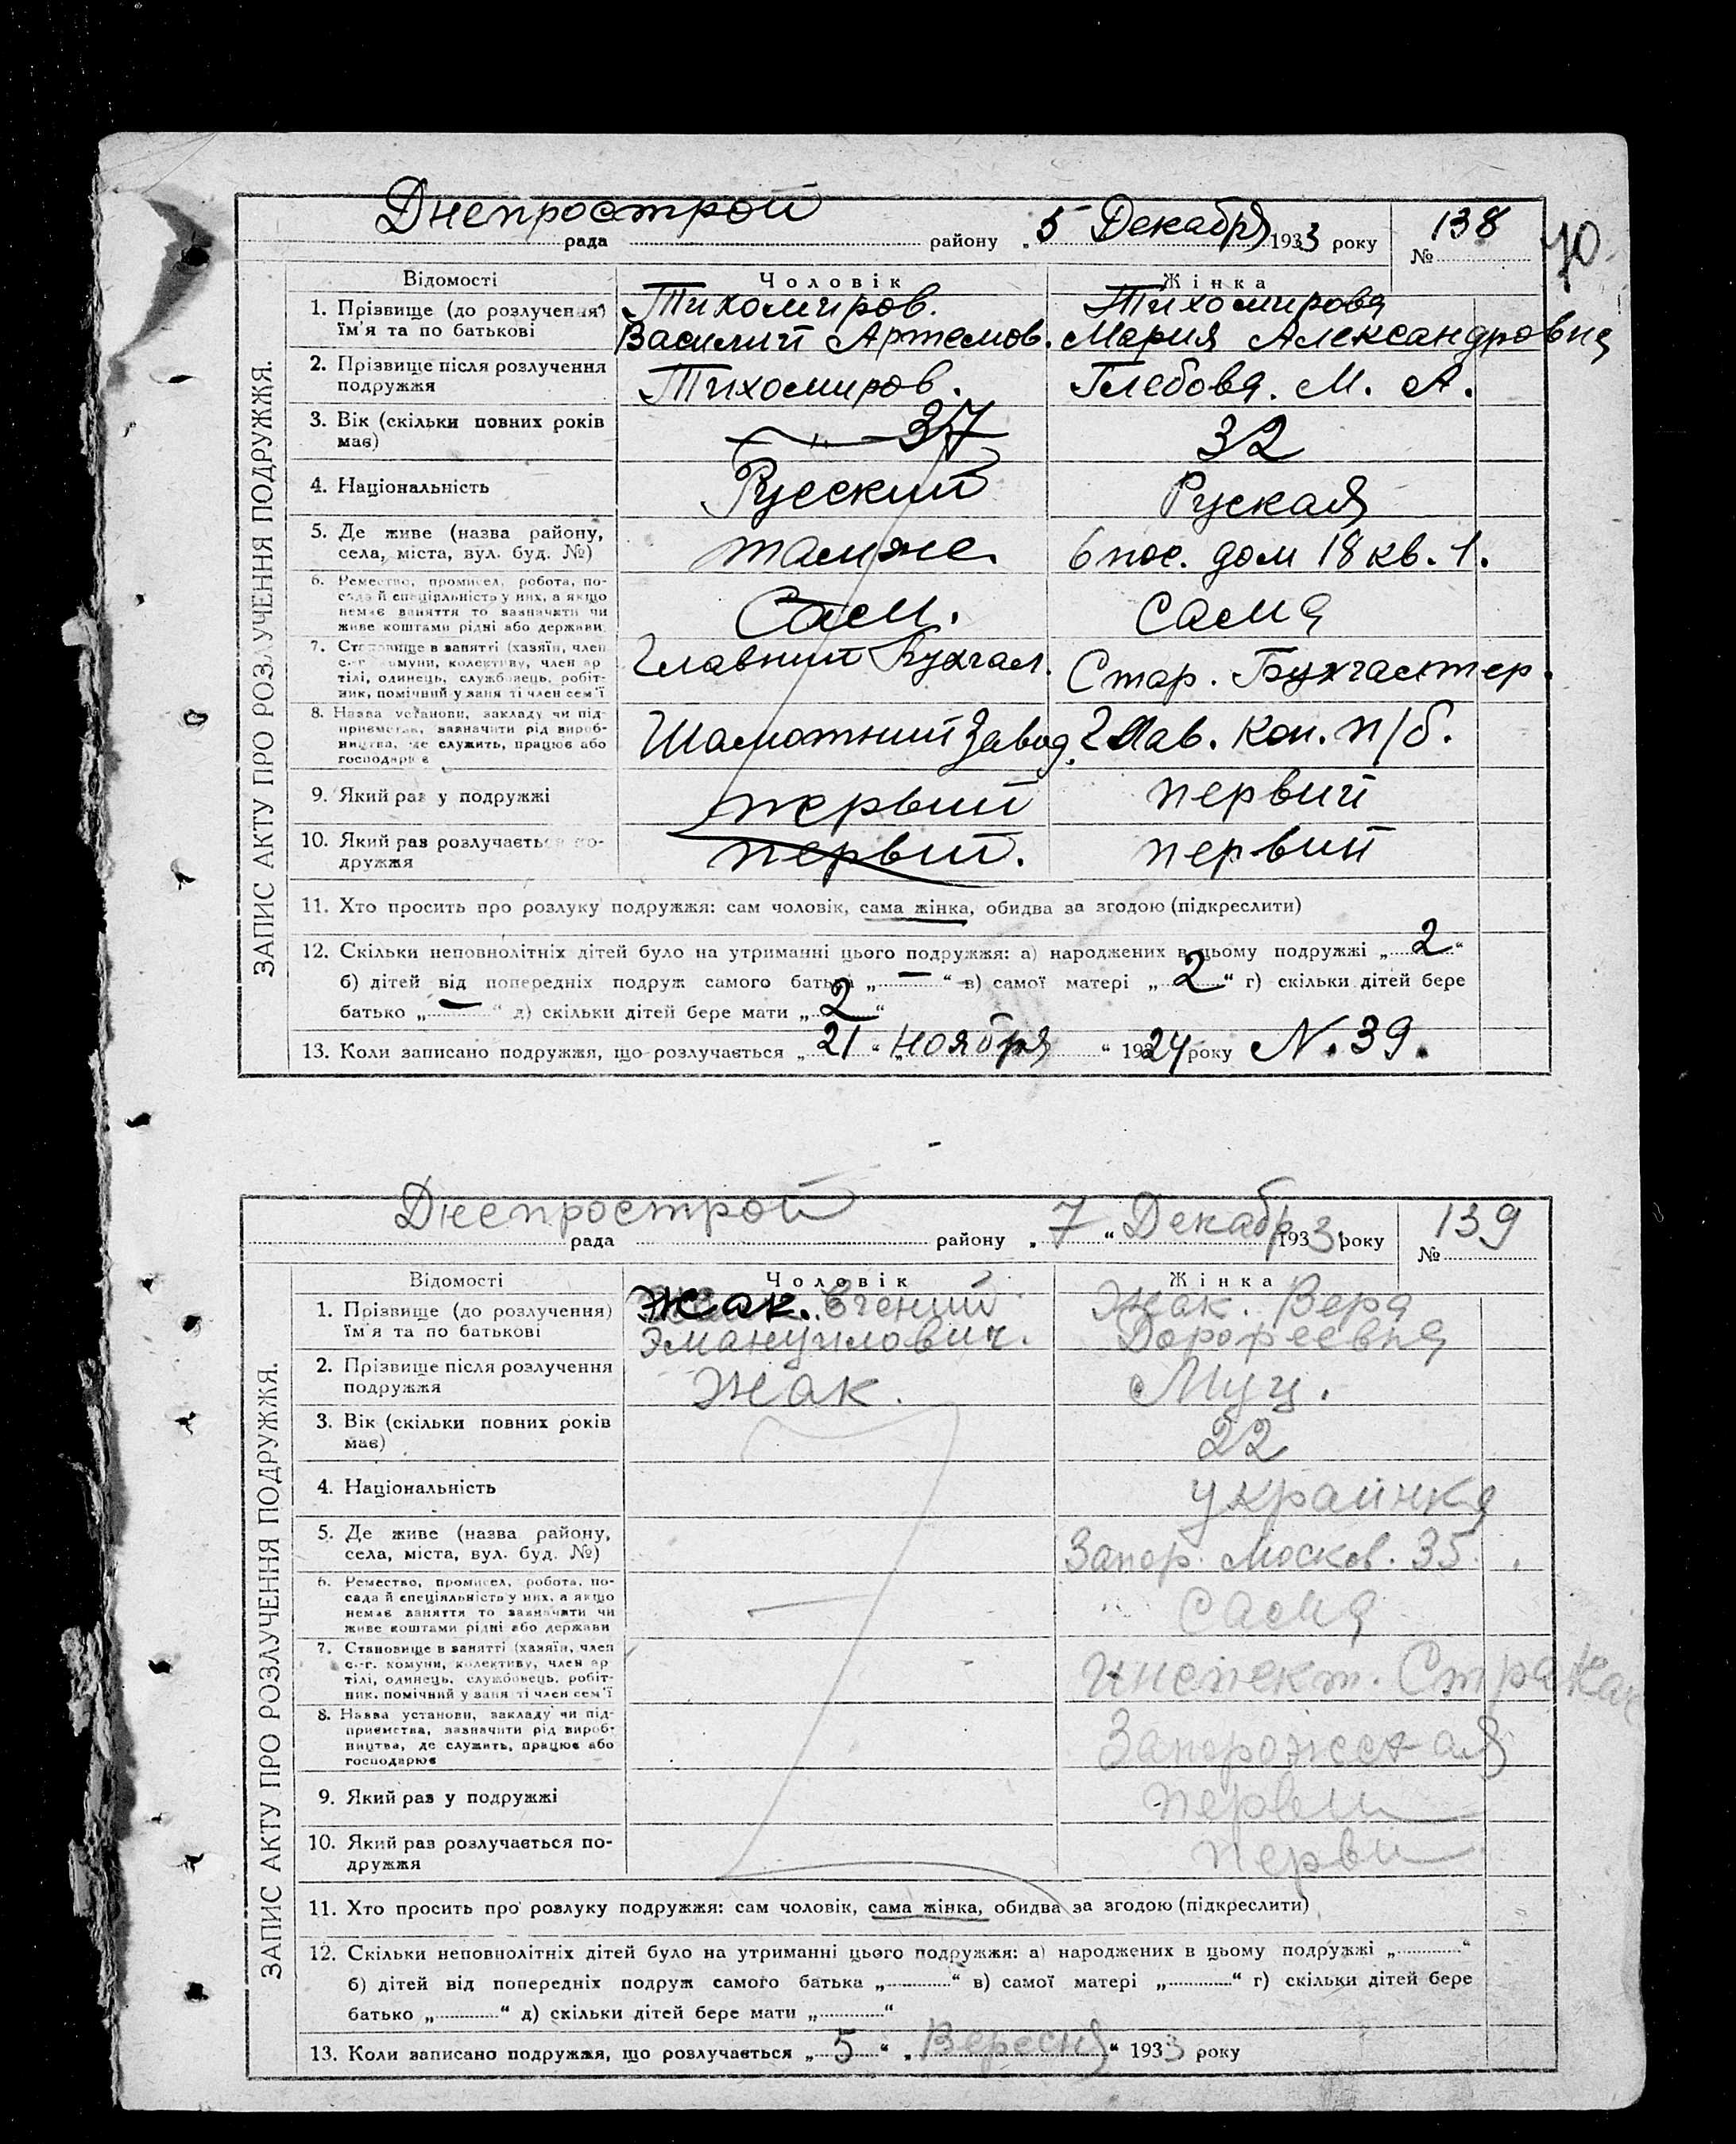 Днепрострой
рада району „5 Декабря 1933 року
№ 138
70
ЗАПИС АКТУ ПРО РОЗЛУЧЕННЯ ПОДРУЖЖЯ.
Відомості Чоловік Жінка
1. Прізвище (до розлучення) Тихомиров. Тихомирова
ім'я та по батькові Василий Артемов. Мария Александровна
2. Прізвище після розлучення
подружжя Тихомиров. Глебова. М. А.
3. Вік (скільки повних років
має) 37 32
4. Національність Русский Руская
5. Де живе (назва району,
села, міста, вул. буд. №) тамже 6 пос. дом 18 кв. 1.
6. Ремество, промисел, робота, по-
сада й спеціяльність у них, а якщо
немає заняття то зазначити чи
живе коштами рідні або держави Сам. сама
7. Становище в занятті (хазяїн, член
с.-г. комуни, колективу, член ар
тілі, одинець, службовець, робіт-
ник, помічний у занятті член сем'ї Главний Бухгал. Стар. Бухгалтер.
8. Назва установи, закладу чи під-
приємства, зазначити рід вироб-
ництва, де служить, працює або
господарює Шамотний Завод. Глав. Кон. п/б.
9. Який раз у подружжі первий первий
10. Який раз розлучається по-
дружжя первий. первий
11. Хто просить про розлуку подружжя: сам чоловік, сама жінка, обидва за згодою (підкреслити)
12. Скільки неповнолітніх дітей було на утриманні цього подружжя: а) народжених в цьому подружжі „2“
б) дітей від попередніх подруж самого батька „—“ в) самої матері „2“ г) скільки дітей бере
батько „—“ д) скільки дітей бере мати „2“
13. Коли записано подружжя, що розлучається „21“ „Ноября“ 1924 року N. 39.
Днепрострой
рада району „7“ Декабр 1933 року
№ 139
ЗАПИС АКТУ ПРО РОЗЛУЧЕННЯ ПОДРУЖЖЯ.
Відомості Чоловік Жінка
1. Прізвище (до розлучення) Жак. Евгений Жак. Вера
ім'я та по батькові Эмануилович. Дорофеевна
2. Прізвище після розлучення
подружжя Жак. Муц.
3. Вік (скільки повних років
має) 22
4. Національність украинка
5. Де живе (назва району,
села, міста, вул. буд. №) Запор. Москов. 35.
6. Ремество, промисел, робота, по-
сада й спеціяльність у них, а якщо
немає заняття то зазначити чи
живе коштами рідні або держави сама
7. Становище в занятті (хазяїн, член
с.-г. комуни, колективу, член ар
тілі, одинець, службовець, робіт-
ник, помічний у занятті член сем'ї инспект.
8. Назва установи, закладу чи під-
приємства, зазначити рід вироб-
ництва, де служить, працює або
господарює Запорожская
9. Який раз у подружжі перви
10. Який раз розлучається по-
дружжя перви
11. Хто просить про розлуку подружжя: сам чоловік, сама жінка, обидва за згодою (підкреслити)
12. Скільки неповнолітніх дітей було на утриманні цього подружжя: а) народжених в цьому подружжі „“
б) дітей від попередніх подруж самого батька „“ в) самої матері „“ г) скільки дітей бере
батько „“ д) скільки дітей бере мати „“
13. Коли записано подружжя, що розлучається „5“ „Вересня“ 1933 року